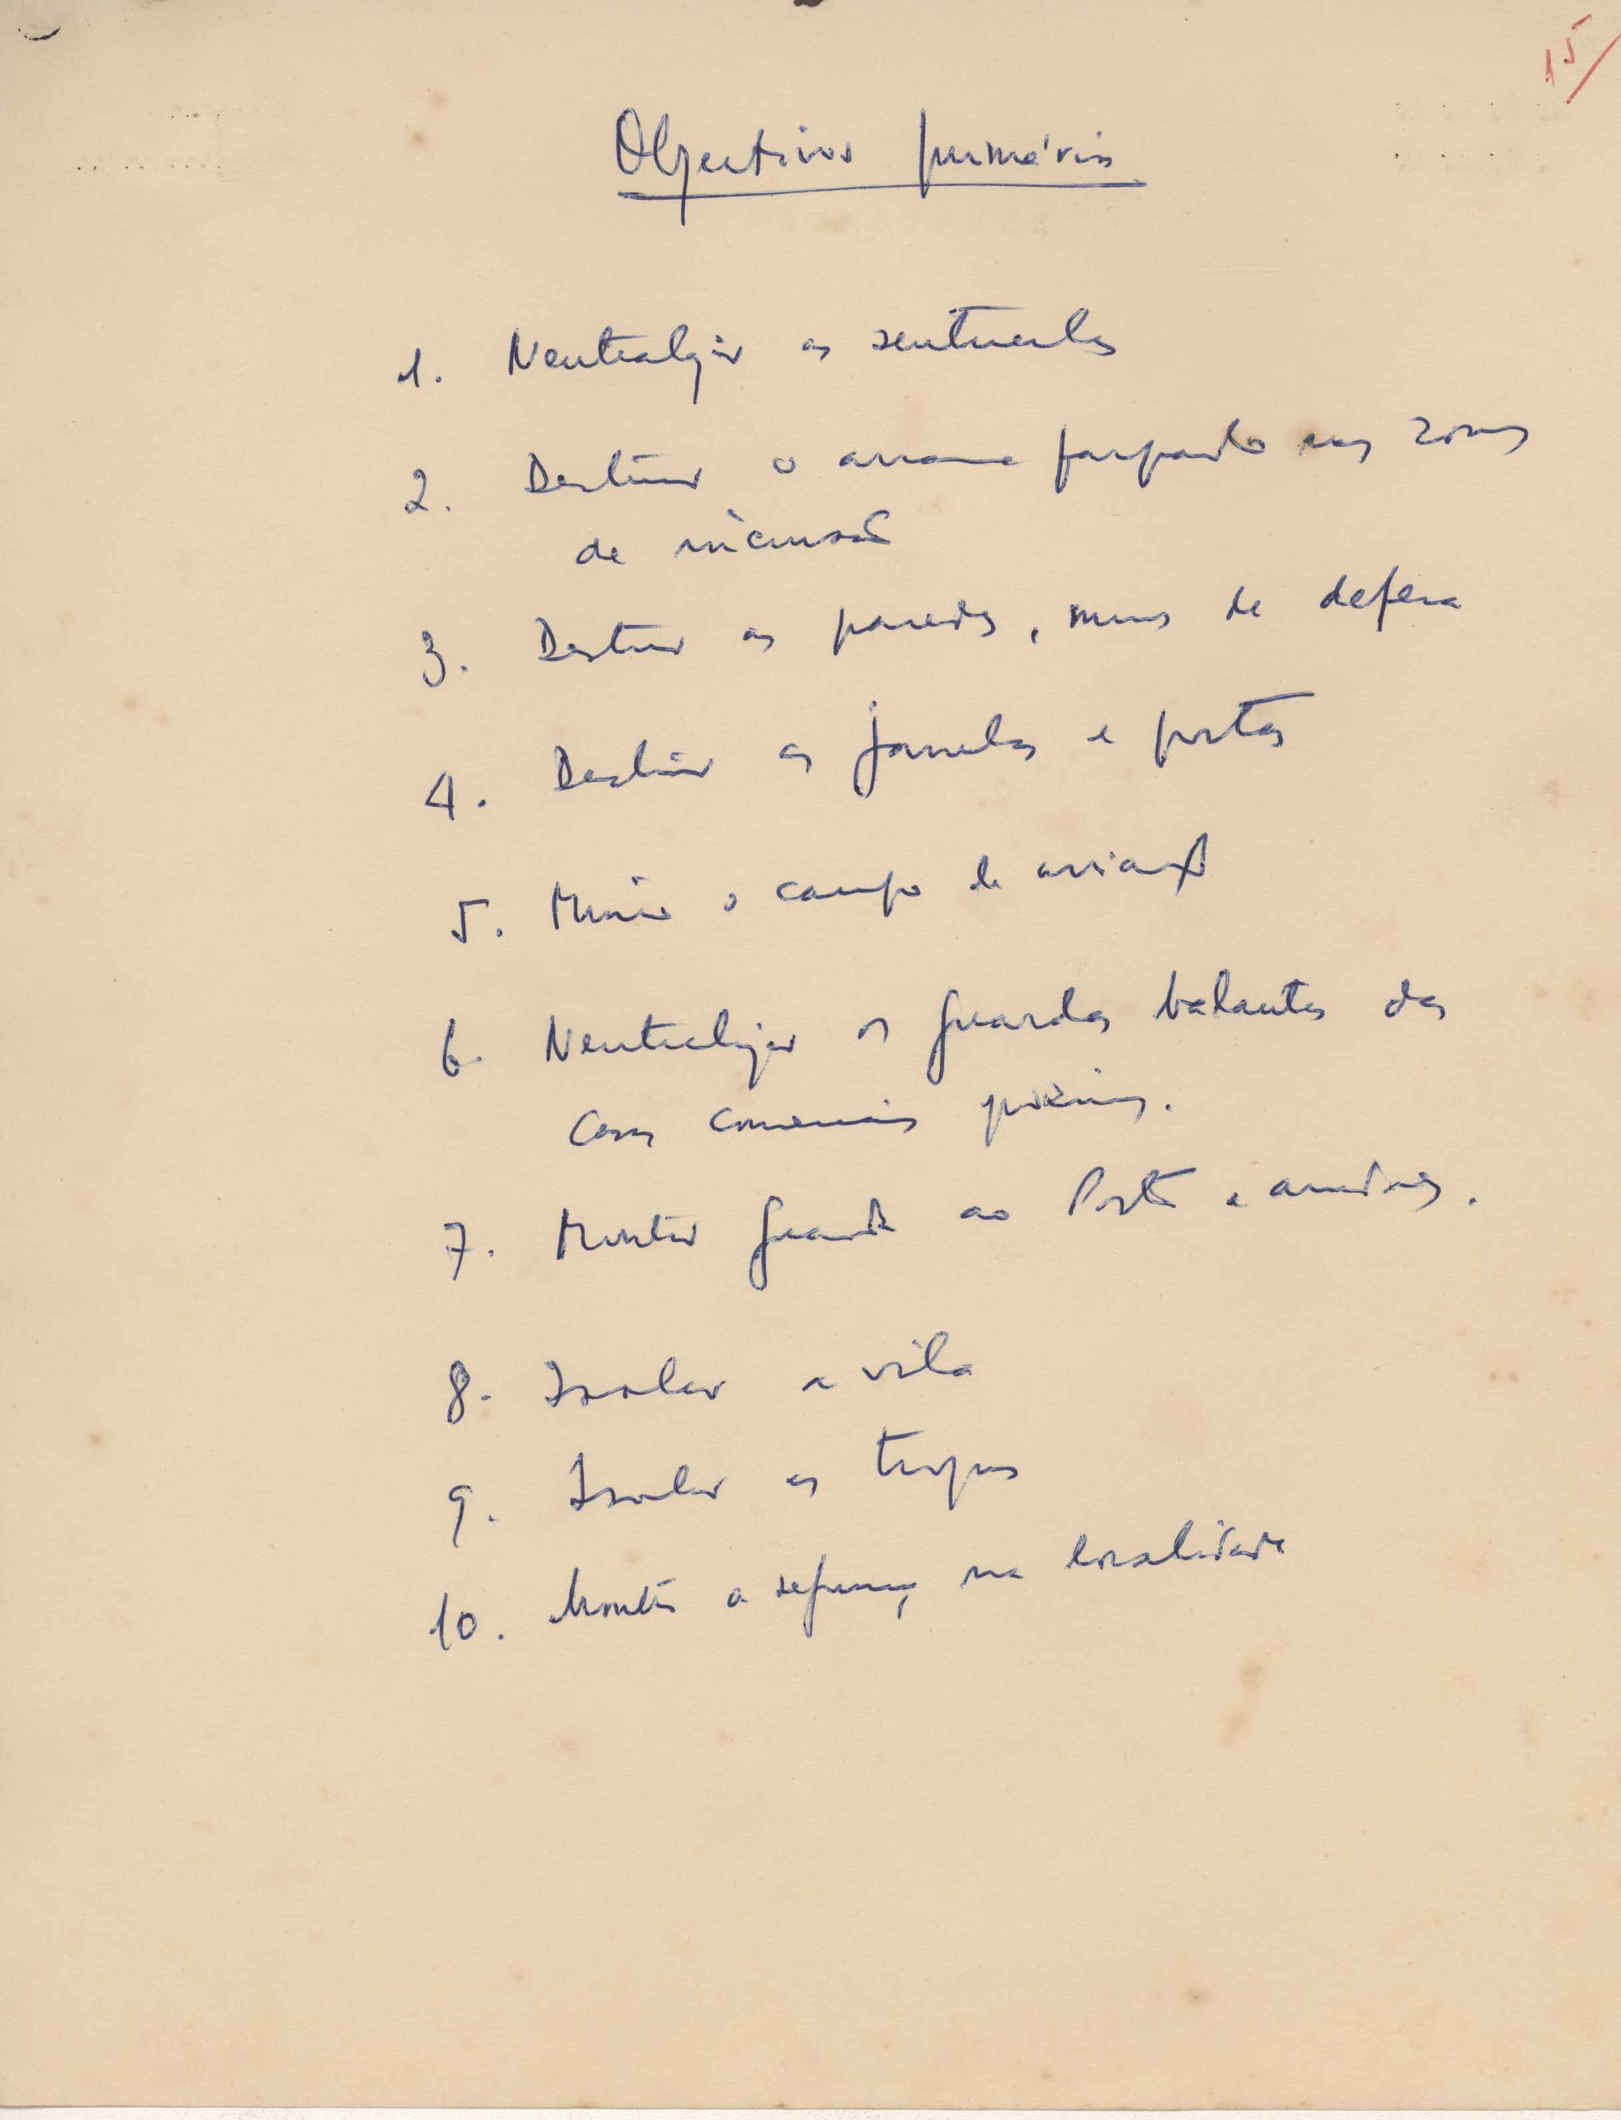 15/
Objectivos primários
1. Neutralizar as sentinelas
2. Destruir o arame farpado nas zonas
de incursão
3. Destruir as paredes, muros de defesa
4. Destruir as janelas e portas
5. Minar o campo de aviação
6. Neutralizar os guardas balantas das
casas comerciais próximas.
7. Montar guarda ao Porto e arredores.
8. Isolar a vila
9. Isolar as tropas
10. Montar a segurança na localidade